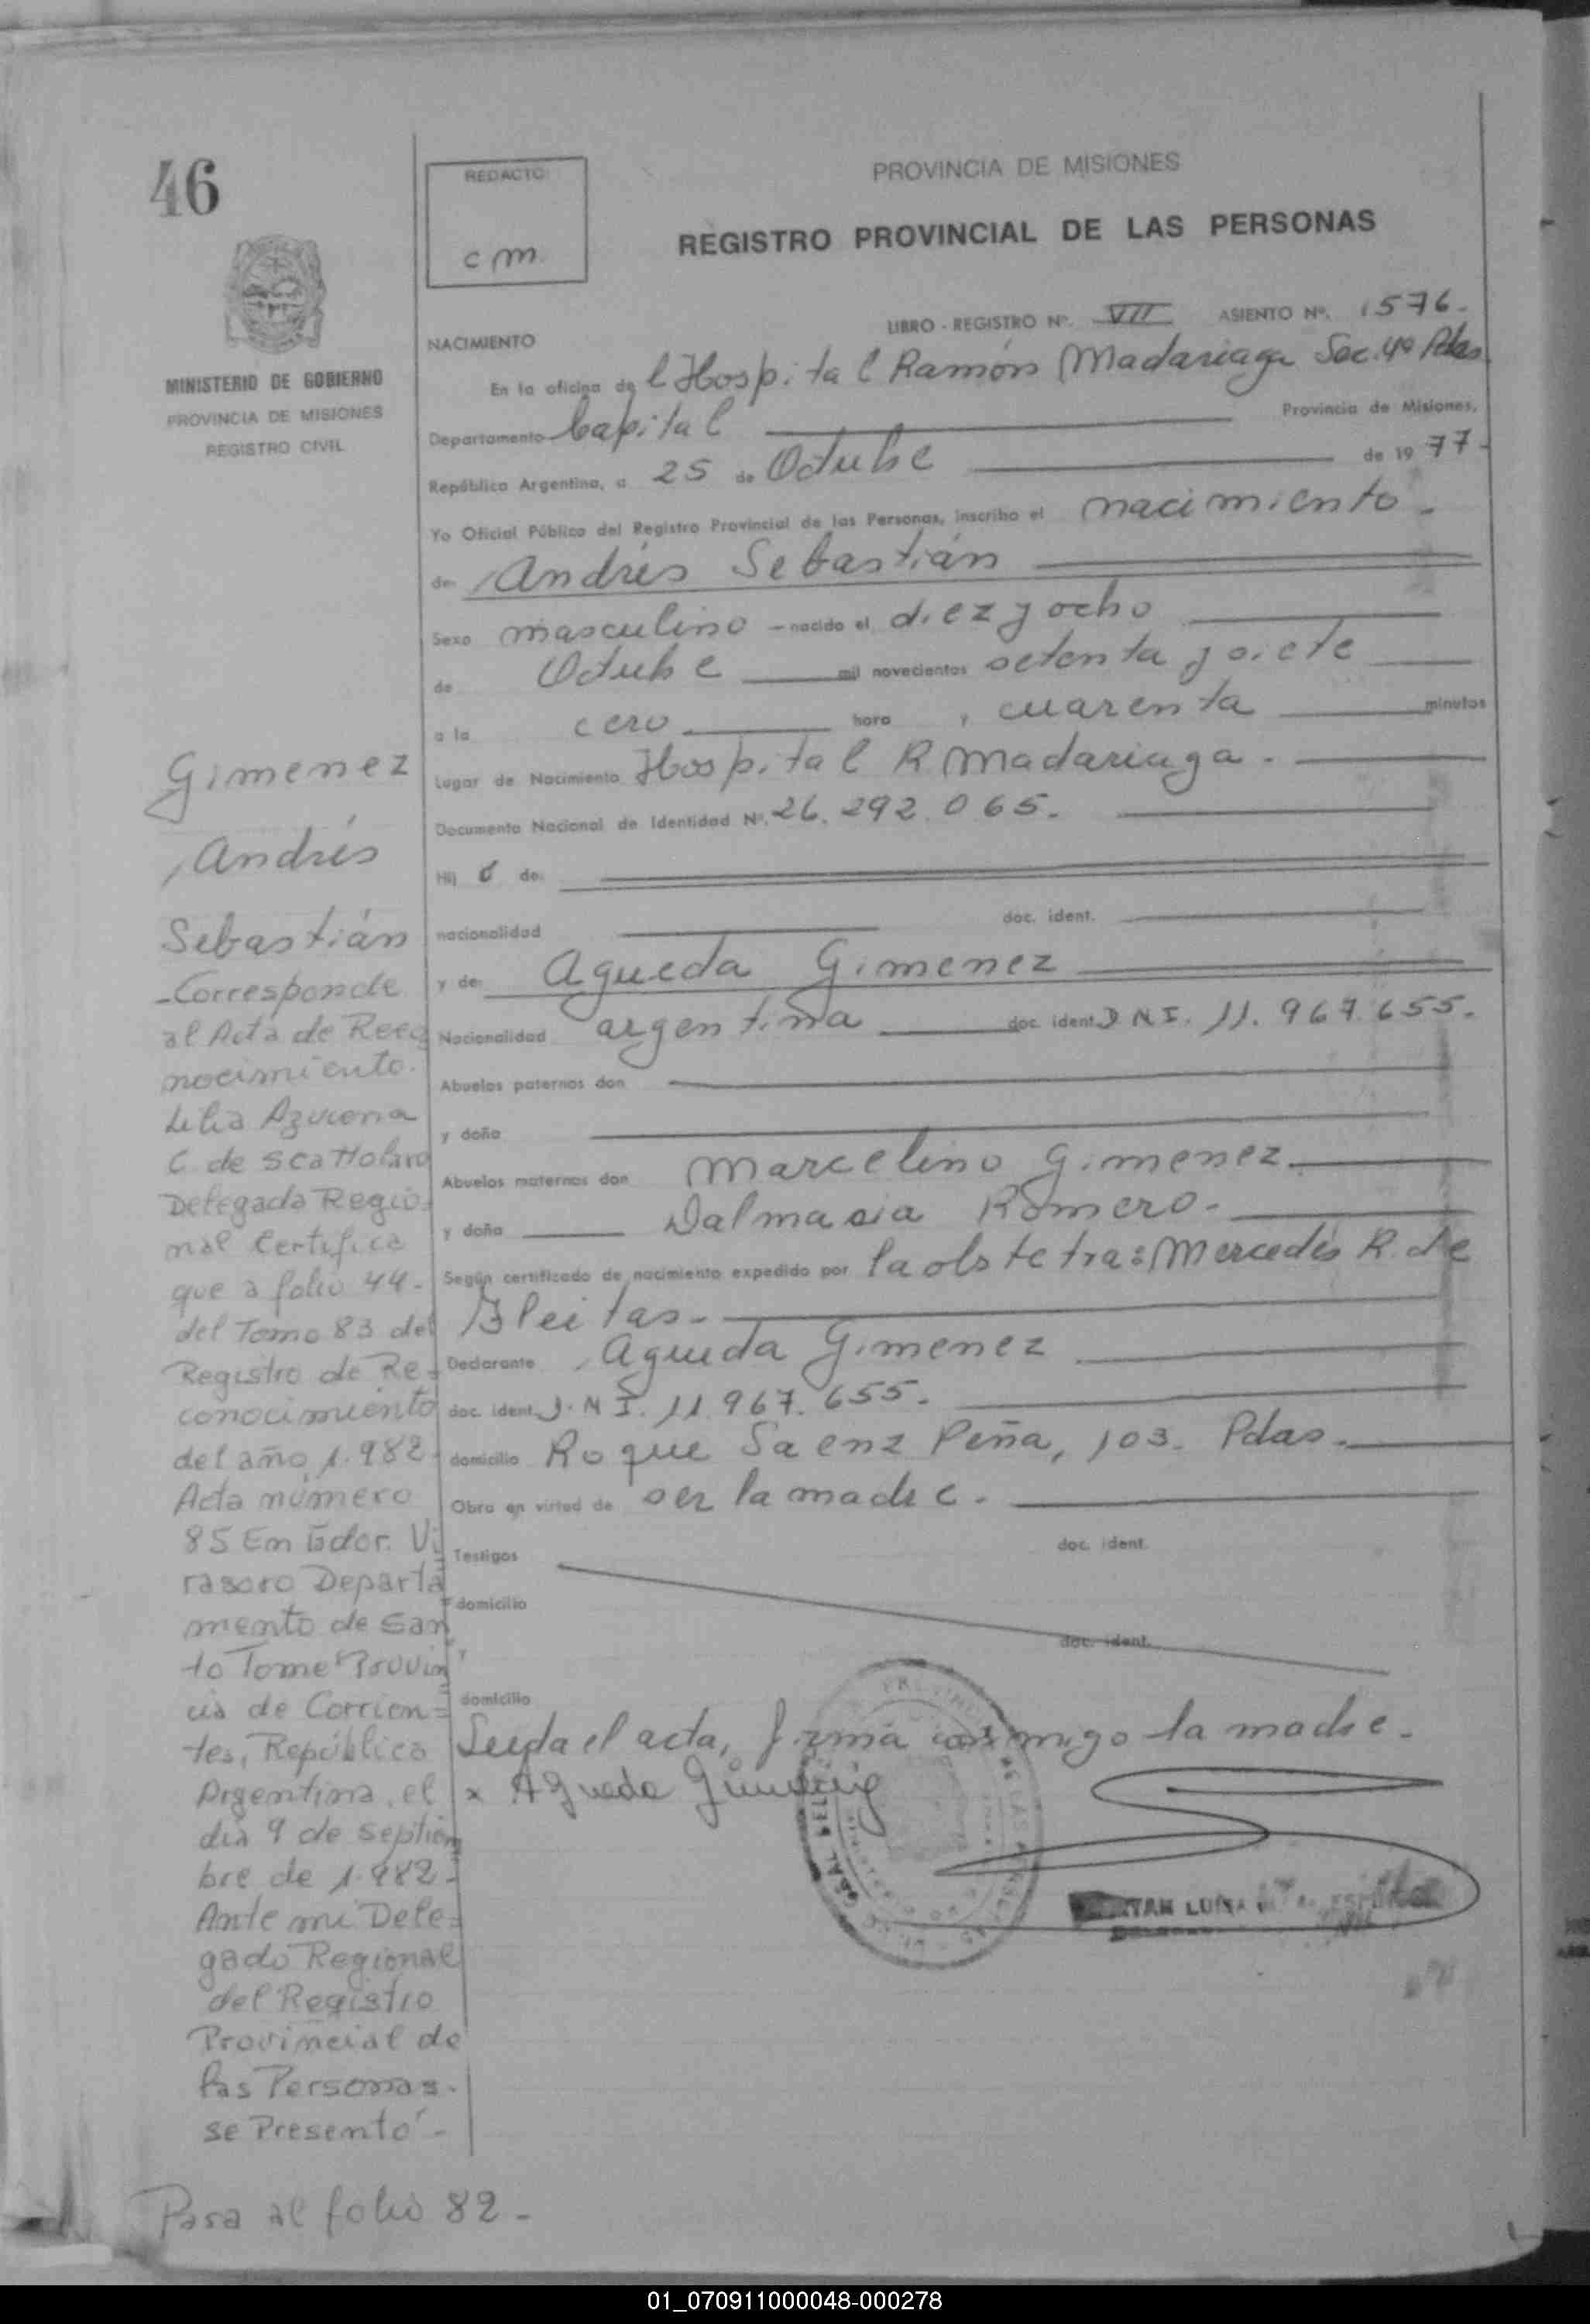 46
REDACTO:
cm.
PROVINCIA DE MISIONES
REGISTRO PROVINCIAL DE LAS PERSONAS
MINISTERIO DE GOBIERNO
PROVINCIA DE MISIONES
REGISTRO CIVIL
LIBRO - REGISTRO Nº. VII ASIENTO Nº. 1576.
NACIMIENTO
En la oficina de l Hospital Ramón Madariaga Sec. 4º Pdas
Departamento Capital Provincia de Misiones,
República Argentina, a 25 de Octubre de 1977-
Yo Oficial Público del Registro Provincial de las Personas, inscribo el nacimiento.
de: Andrés Sebastián
Sexo masculino - nacido el diez y ocho
de Octubre mil novecientos setenta y siete
a la cero hora y cuarenta minutos
Lugar de Nacimiento Hospital R. Madariaga.
Documento Nacional de Identidad Nº. 26.292.065.
Hij o de:
nacionalidad doc. ident.
y de: Agueda Gimenez
Nacionalidad argentina doc. ident. D N I. 11.967.655.
Abuelos paternos don
y doña
Abuelos maternos don Marcelino Gimenez.
y doña Dalmasia Romero.
Según certificado de nacimiento expedido por la obstetra: Mercedes R. de
Fleitas.
Declarante Agueda Gimenez
doc. ident. D. N I. 11.967.655.
domicilio Roque Saenz Peña, 103. Pdas.
Obra en virtud de ser la madre.
Testigos doc. ident.
domicilio
y doc. ident.
domicilio
Leída el acta, firma conmigo la madre.
x Agueda Gimenez
Gimenez
Andrés
Sebastián
-Corresponde
al Acta de Reco
nocimiento.
Lilia Azucena
C. de Scattolaro
Delegada Regio-
nal Certifica
que a folio 44-
del Tomo 83 del
Registro de Re-
conocimiento
del año 1.982-
Acta número
85 Em Gdor. Vi
rasoro Departa
mento de San
to Tome Provin
cia de Corrien=
tes, República
Argentina, el
dia 9 de septiem
bre de 1.982-
Ante mi Dele=
gado Regional
del Registro
Provincial de
las Personas.
se Presentó-
Pasa al folio 82-
01_070911000048-000278